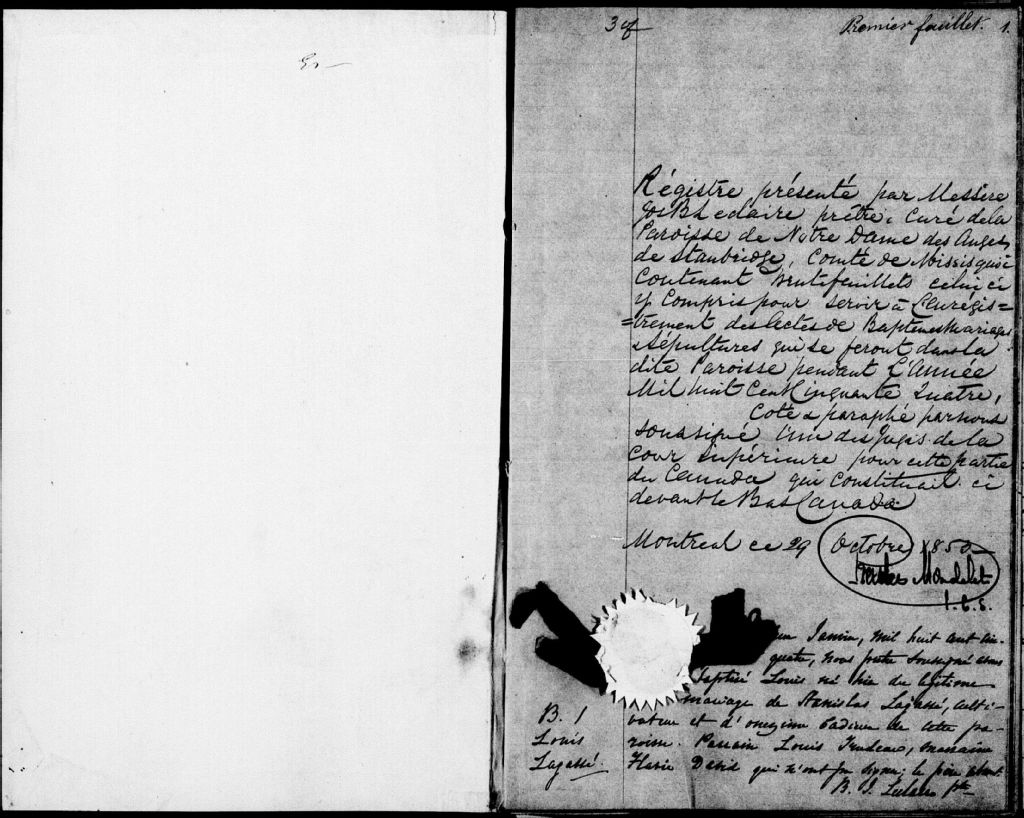 Premier feuillet. 1.
Régistre présenté par Messire
Jos B Leclaire prêtre, Curé de la
Paroisse de Notre Dame des Anges
de Stanbridge, Comté de Missisquoi
Contenant feuillets celui ci
y Compris pour servir à L'enrégis=
=trement des Actes de Baptêmes Mariages
& Sépultures qui se feront dans la
dite Paroisse pendant L'Année
Mil huit Cent Cinquante Quatre,
Coté & paraphé par nous
soussigné l'un des Juges de la
Cour Supérieure pour cette partie
du Canada qui constituait ci
devant le Bas Canada
Montreal ce 29 Octobre 185
Mondelet
J. C. S.
Janvier, mil huit cent cin-
quatre, nous prêtre soussigné avons
baptisé Louis né hier du légitime
mariage de Stanislas Lagassé, culti-
vateur et d'onezime Badieu de cette pa-
roisse. Parrain Louis Trudeau, marraine
Marie David qui n'ont pu signer; le père absent.
B. J. Leclaire ptre
B. 1
Louis
Lagassé.